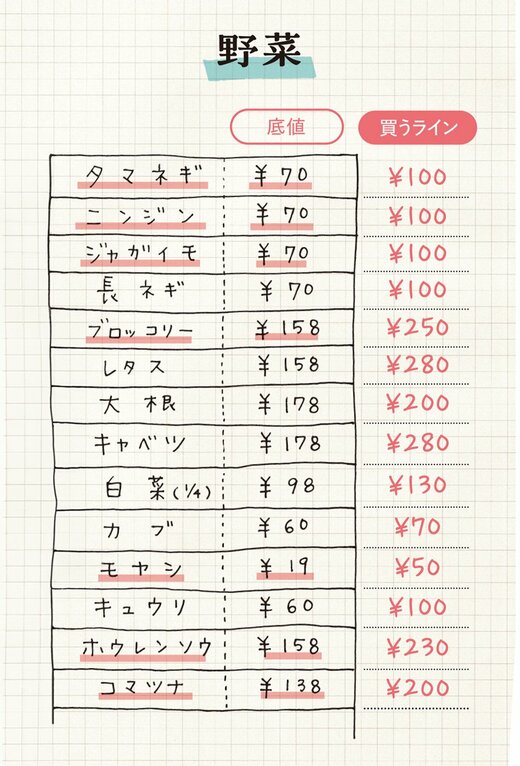 野菜
底値 買うライン
タマネギ ¥70 ¥100
ニンジン ¥70 ¥100
ジャガイモ ¥70 ¥100
長ネギ ¥70 ¥100
ブロッコリー ¥158 ¥250
レタス ¥158 ¥280
大根 ¥178 ¥200
キャベツ ¥178 ¥280
白菜(1/4) ¥98 ¥130
カブ ¥60 ¥70
モヤシ ¥19 ¥50
キュウリ ¥60 ¥100
ホウレンソウ ¥158 ¥230
コマツナ ¥138 ¥200